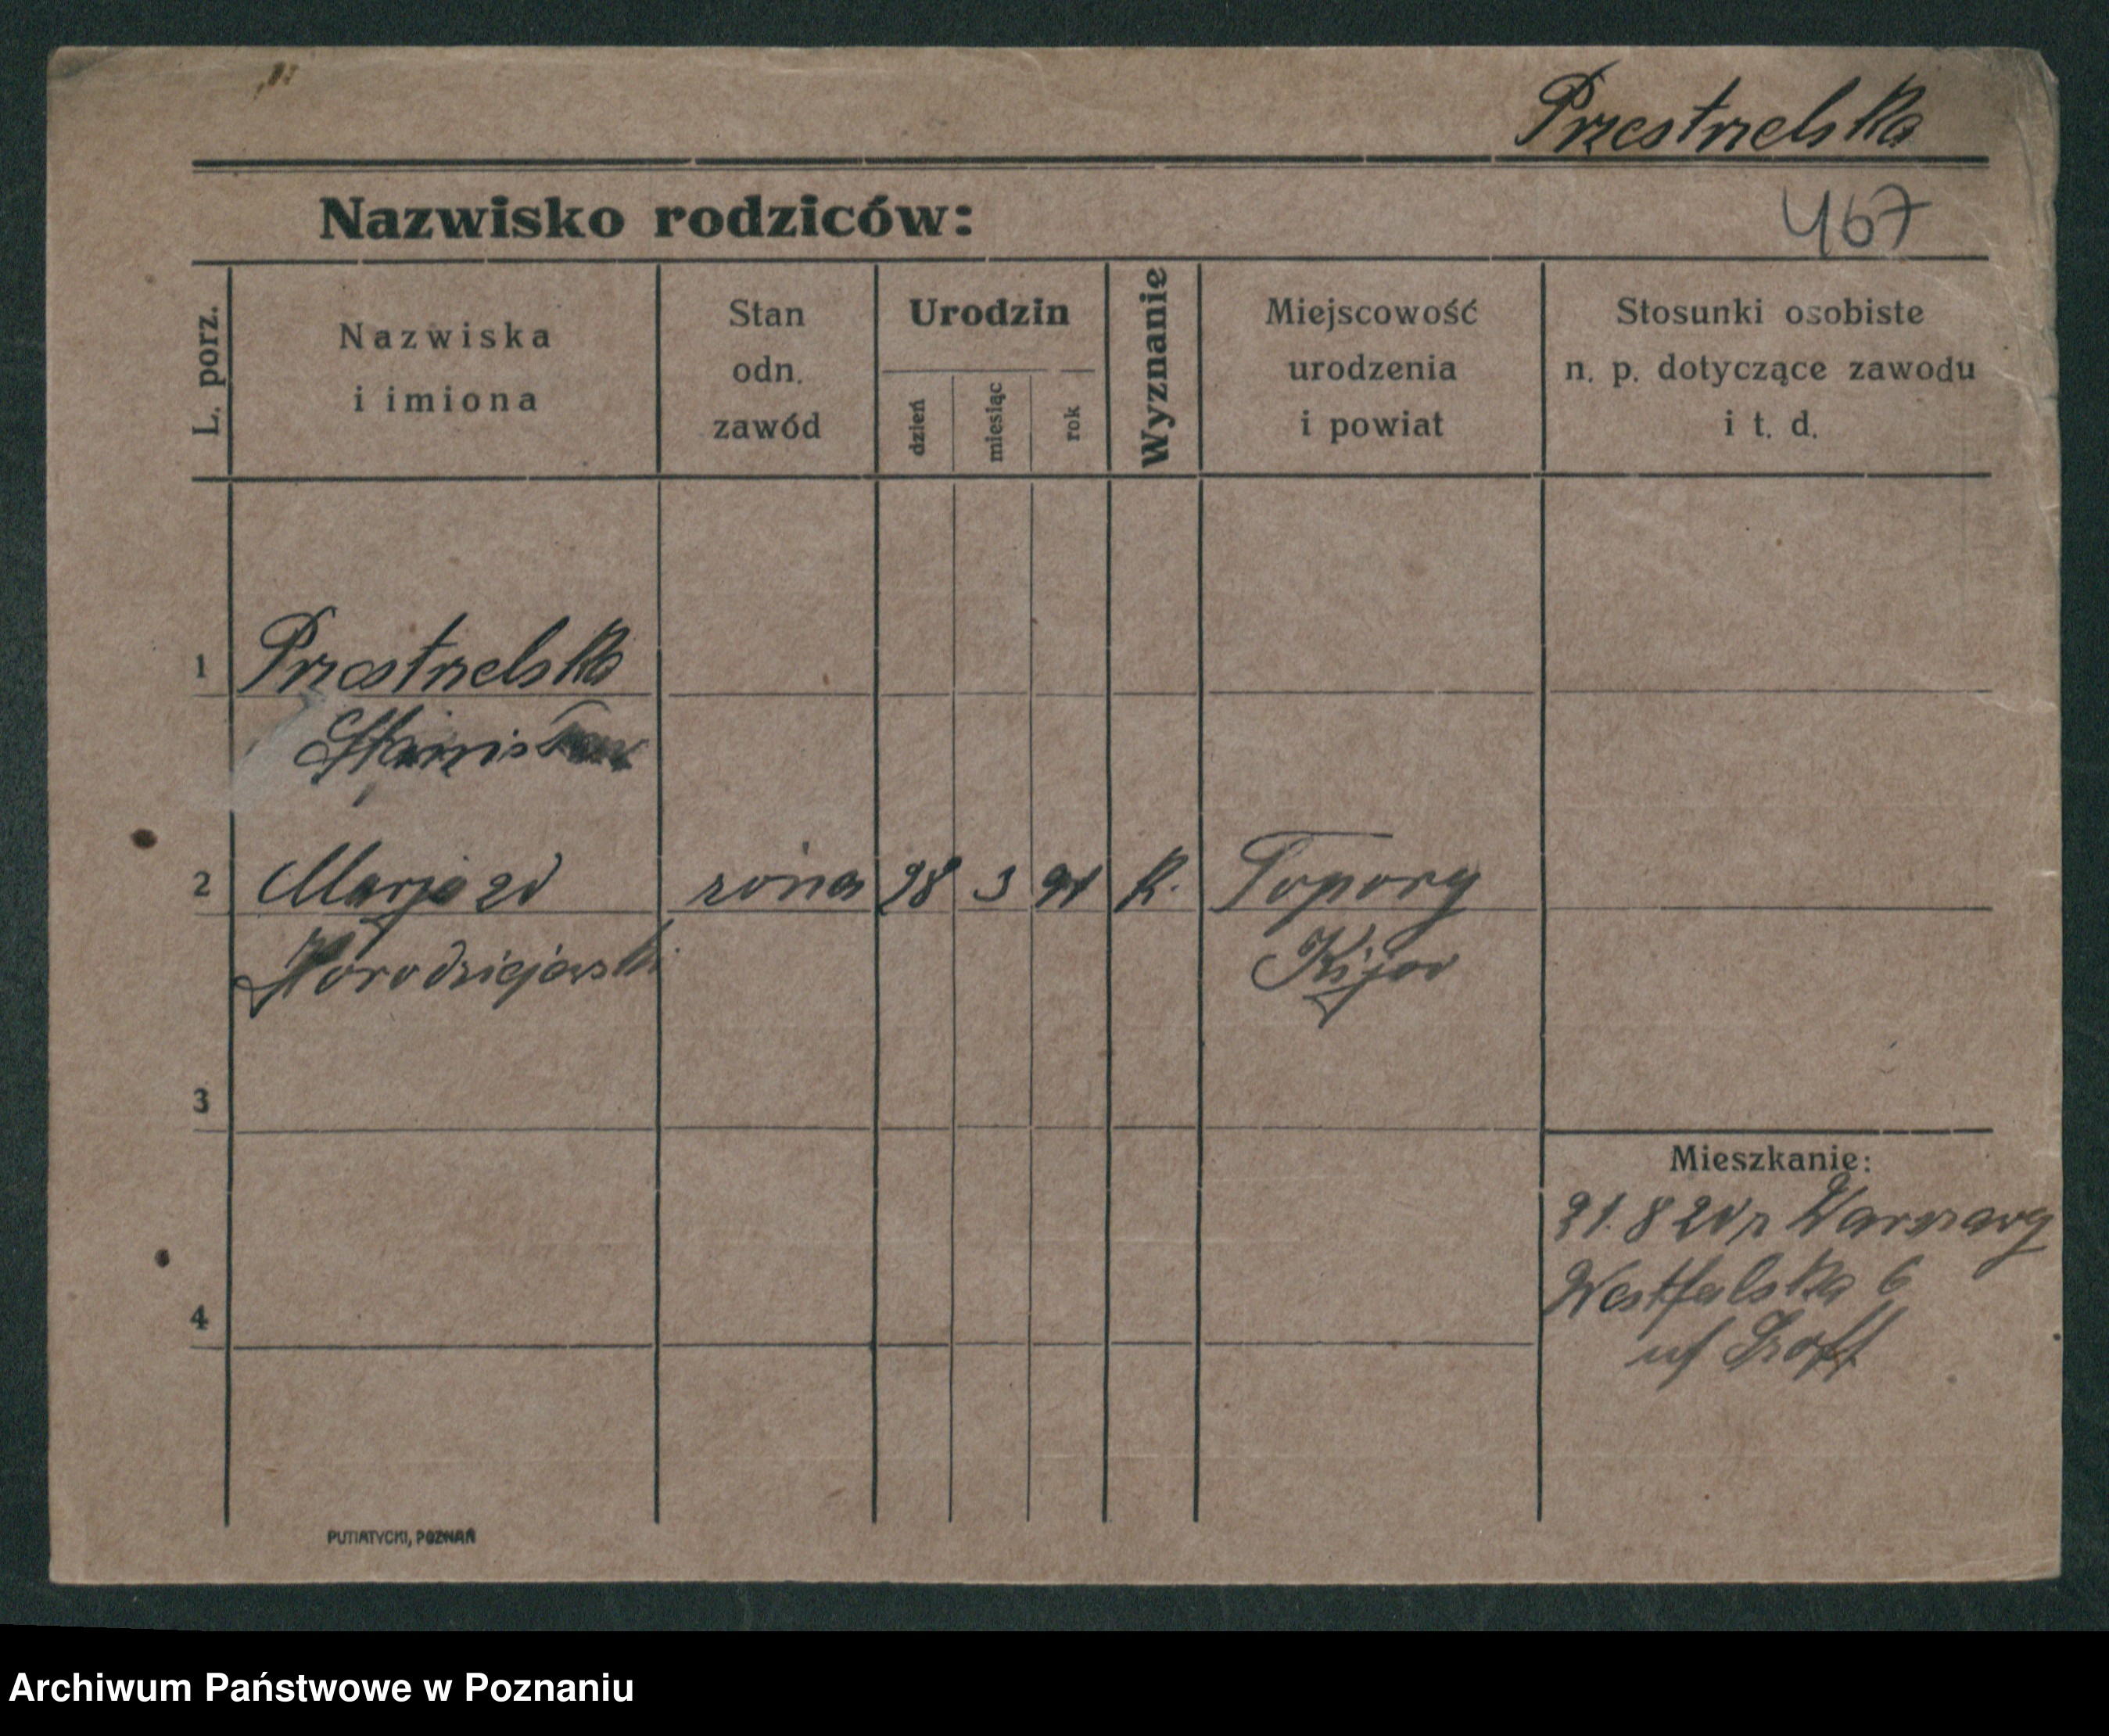 Przestrzelska
Nazwisko rodziców:
467
L. porz.
Nazwiska
i imiona
Stan
odn.
zawód
Urodzin
dzień
miesiąc
rok
Wyznanie
Miejscowość
urodzenia
i powiat
Stosunki osobiste
n. p. dotyczące zawodu
i t. d.
1 Przestrzelska
Stanisław
2 Marja zd żona 28 3 91 k. Topory
Horodziejewski Kijow
3
Mieszkanie:
31.8 20 z Warszawy
Westfalska 6
4
PUTIATYCKI, POZNAŃ
Archiwum Państwowe w Poznaniu